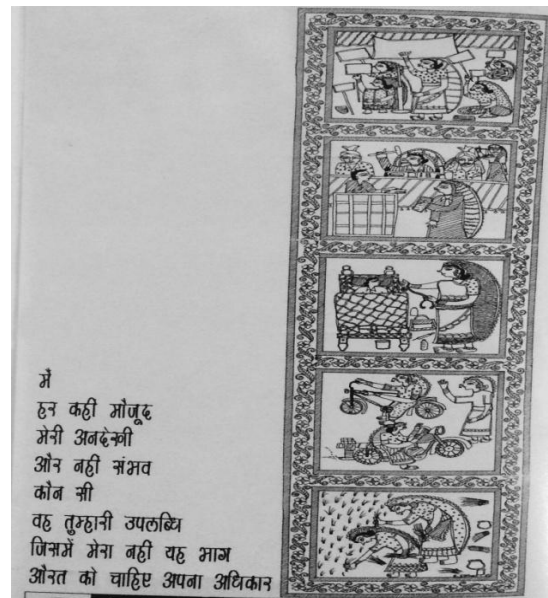 मैं
हर कहीं मौजूद
मेरी अनदेखी
और नहीं संभव
कौन सी
वह तुम्हारी उपलब्धि
जिसमें मेरा नहीं यह भाग
औरत को चाहिए अपना अधिकार